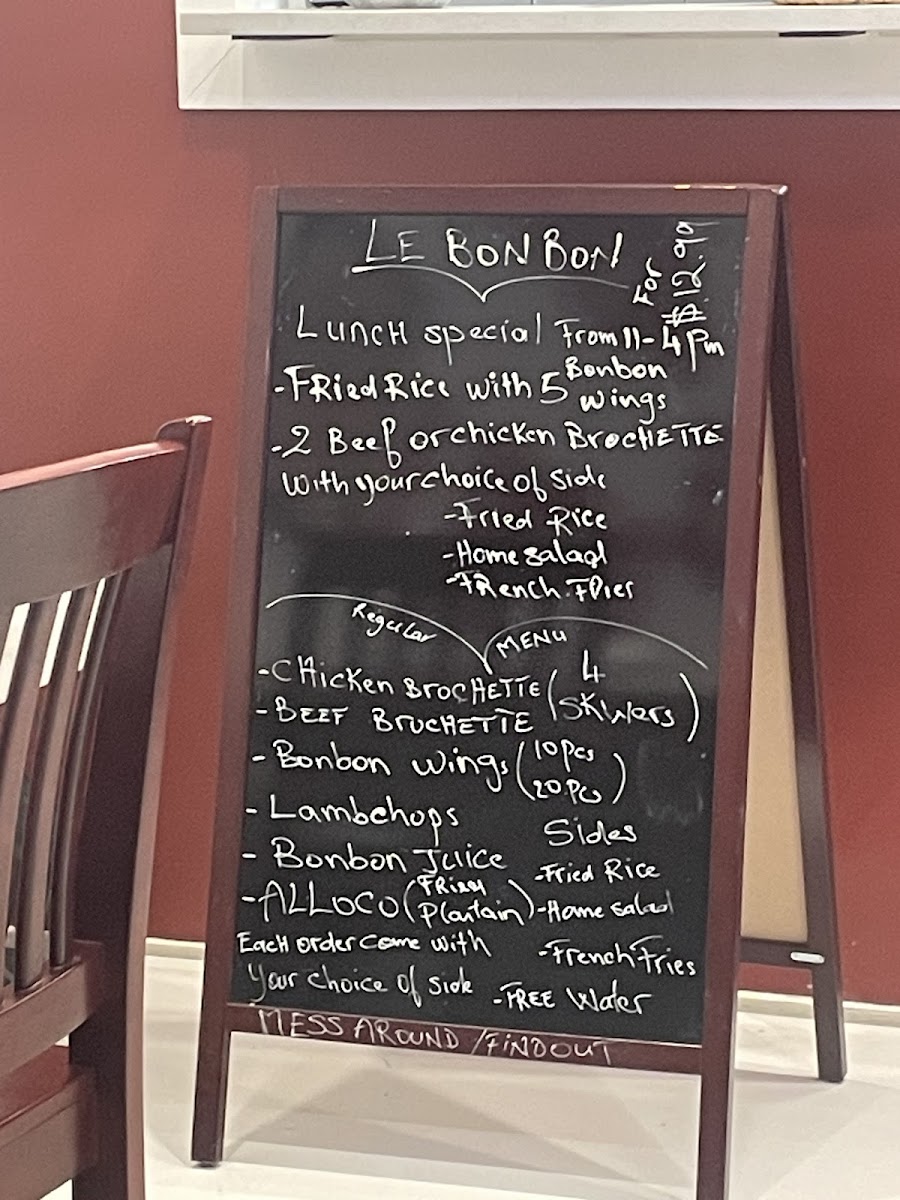 LE BON BON
For $12.99
Lunch special From 11-4pm
-Fried Rice with 5 Bonbon wings
-2 Beef or chicken BROCHETTE
With your choice of side
-Fried Rice
-Home salad
-French Fries
Regular MENU
-CHicken BROCHETTE (4
-BEEF BRUCHETTE SKwers)
-Bonbon wings (10 Pcs
20 Pcs)
-Lambchops
-Bonbon Juice
-ALLOCO (Fried Plantain)
Each order come with
Your choice of side
Sides
-Fried Rice
-Home salad
-French Fries
-FREE Water
MESS AROUND /FIND OUT